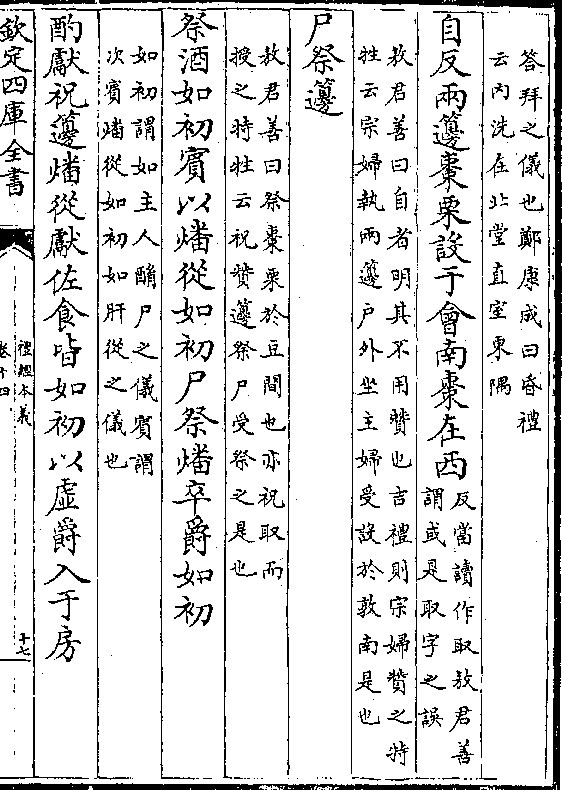 答拜之儀也鄭康成曰昏禮
云内洗在北堂直室東隅
自反兩籩棗栗設于會南棗在西
反當讀作取敖君善
謂或是取字之誤
敖君善曰自者明其不用贊也吉禮則宗婦贊之特
牲云宗婦執兩籩户外坐主婦受設於敦南是也
尸祭籩
敖君善曰祭棗栗於豆間也亦祝取而
授之特牲云祝贊籩祭尸受祭之是也
祭酒如初賓以燔從如初尸祭燔卒爵如初
如初謂如主人酳尸之儀賓謂
次賓燔從如初如肝從之儀也
酌獻祝籩燔從獻佐食皆如初以虛爵入于房
欽定四庫全書
禮經本義
卷十四
十七